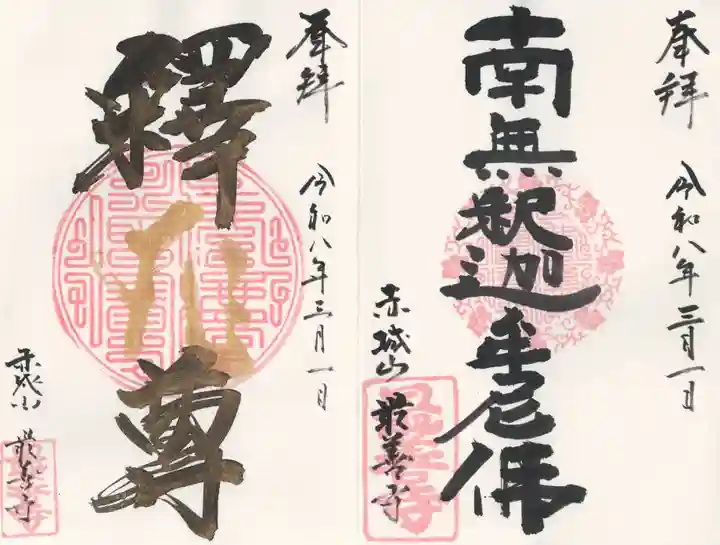 奉拝
南無釈迦牟尼佛
令和八年三月一日
赤城山 最善寺
奉拝
釋尊
令和八年三月一日
赤城山 最善寺